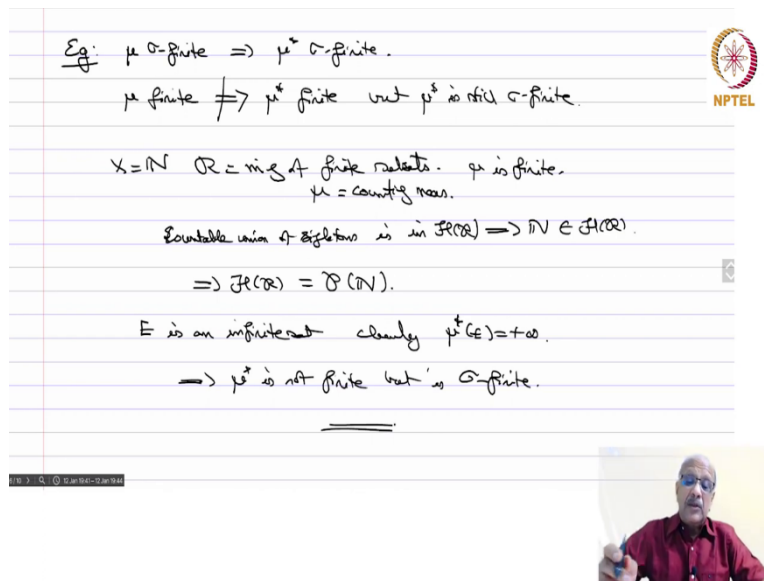 Eg: μ σ-finite => μ* σ-finite.
μ finite ≠> μ* finite but μ* is still σ-finite.
NPTEL
X = ℕ R = ring of finite subsets. μ is finite.
μ = counting meas.
Countable union of singletons is in H(R) => ℕ ∈ H(R).
=> H(R) = P(ℕ).
E is an infinite set clearly μ*(E) = +∞.
=> μ* is not finite but is σ-finite.
12 Jan 19:41–12 Jan 19:44